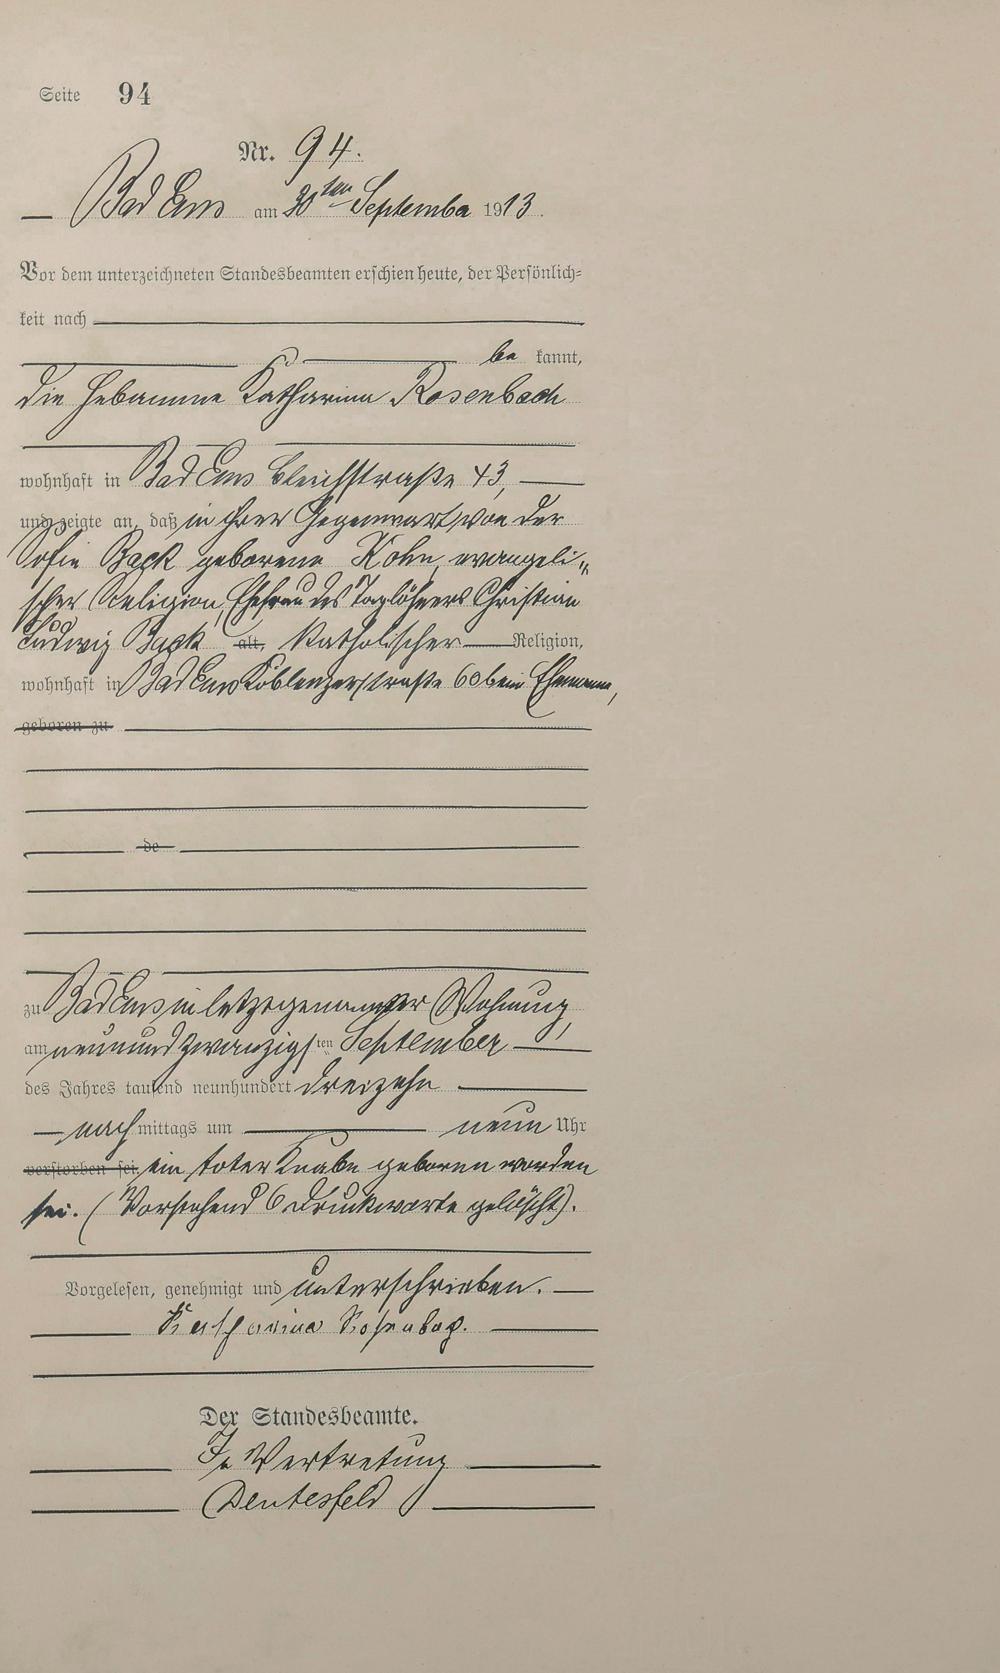 Seite 94
Nr. 94.
Bad Ems am 30ten September 1913.
Vor dem unterzeichneten Standesbeamten erschien heute, der Persönlich-
keit nach
be kannt,
die Hebamme Katharina Rosenbach
wohnhaft in Bad Ems Bleichstraße 43,
und zeigte an, daß in ihrer Gegenwart von der
Sofie Back geborene Kohn, evangeli-
scher Religion, Ehefrau des Taglöhners Christian
Ludwig Back alt, katholischer Religion,
wohnhaft in Bad Ems Koblenzerstraße 60 beim Ehemanne,
geboren zu
de
zu Bad Ems in letztgenannter Wohnung,
am neunundzwanzigsten September
des Jahres tausend neunhundert dreizehn
nach mittags um neun Uhr
verstorben sei. ein toter Knabe geboren worden
sei. (Vorstehend 6 Druckworte gelöscht).
Vorgelesen, genehmigt und unterschrieben.
Katharina Rosenbach.
Der Standesbeamte.
In Vertretung